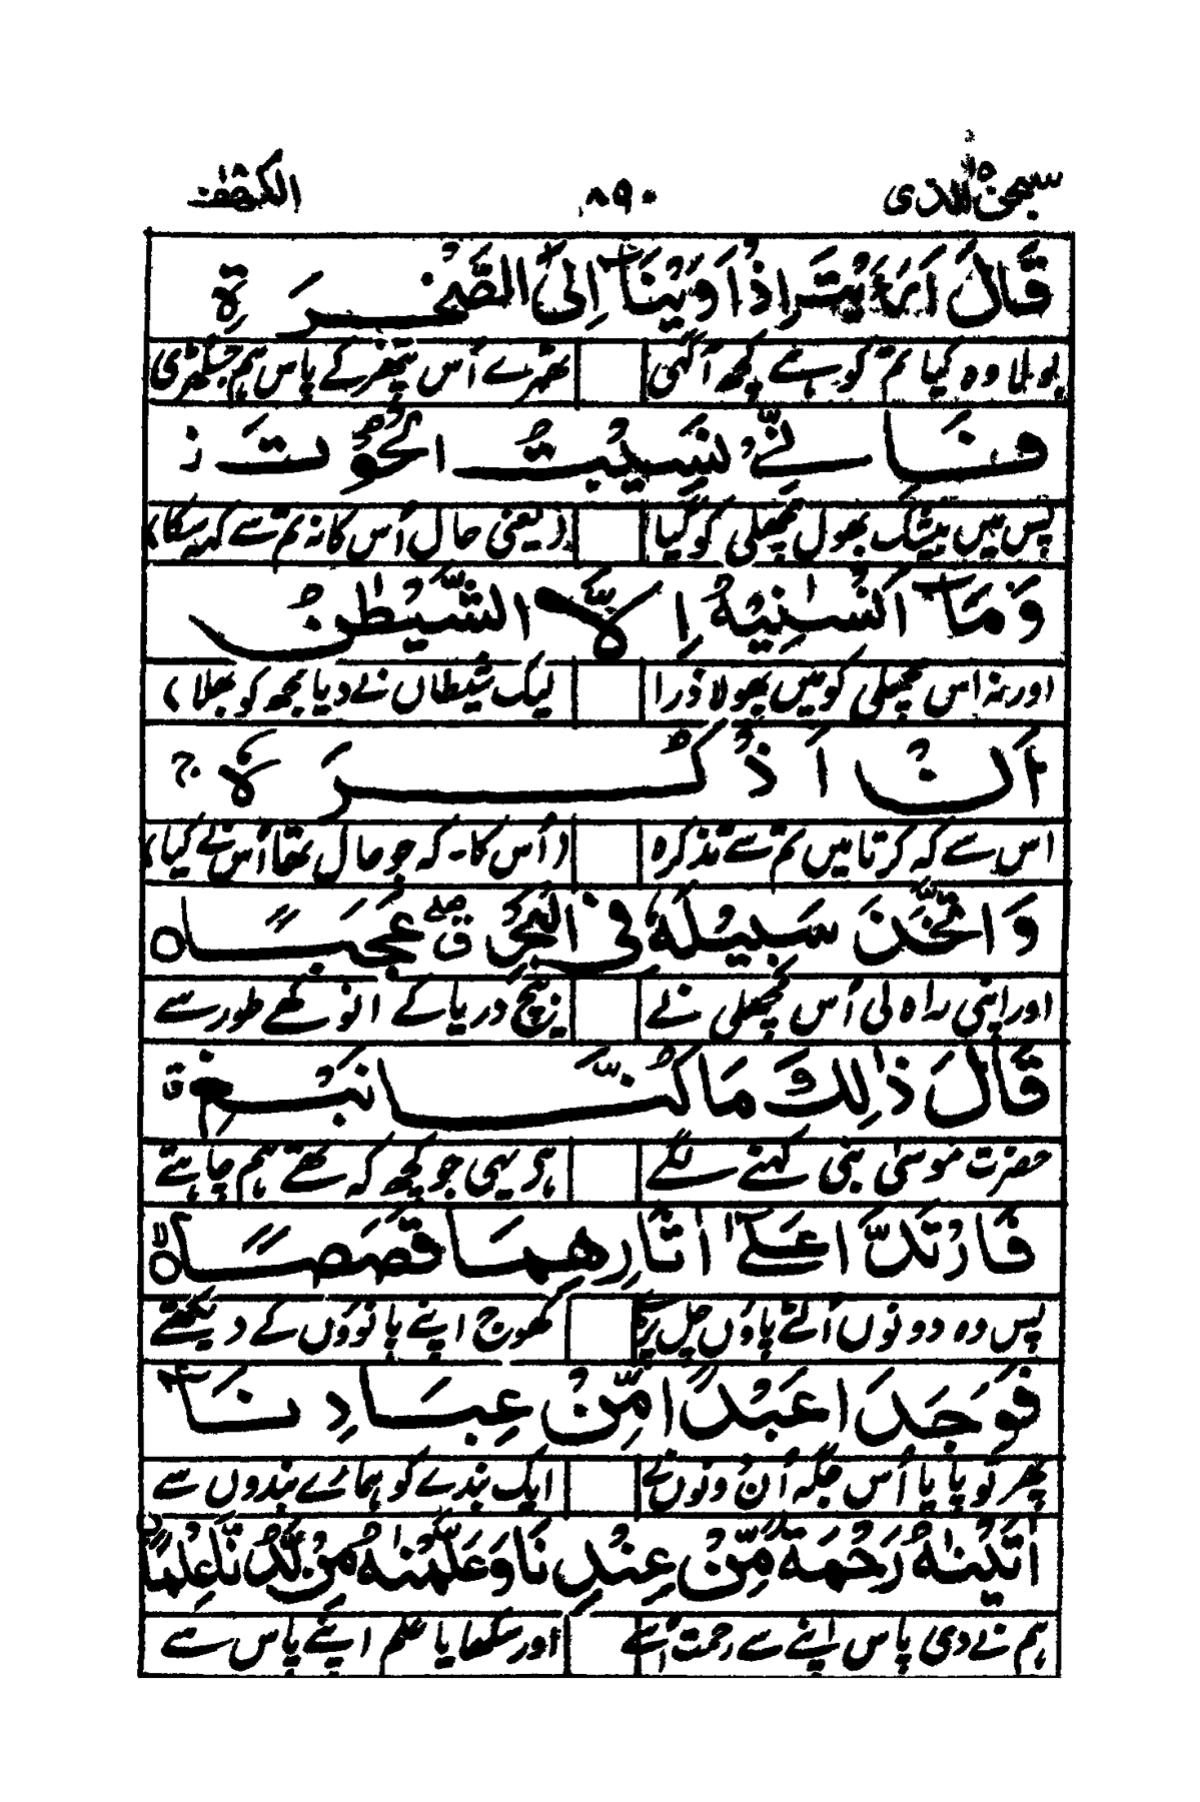 سبحٰن الذی ۸۹۰ الکھف
قَالَ اَرَءَیْتَ اِذْ اَوَیْنَاۤ اِلَی الصَّخْرَۃِ
بولا وہ کیا تم کو ہے کچھ آگہی ٹھہرے اُس پتھر کے پاس ہم جس گھڑی
فَاِنِّیْ نَسِیْتُ الْحُوْتَ ز
پس میں بیشک بھول مچھلی کو گیا (یعنی حال اُس کا نہ تم سے کہہ سکا)
وَمَاۤ اَنْسٰنِیْہُ اِلَّا الشَّیْطٰنُ
اور نہ اس مچھلی کو میں بھولا ذرا لیک شیطاں نے دیا مجھ کو بھلا )
اَنْ اَذْکُرَہٗ ج
اس سے کہ کرتا میں تم سے تذکرہ (اُس کا۔ کہ جو حال تھا اُس نے کیا)
وَاتَّخَذَ سَبِیْلَہٗ فِی الْبَحْرِ ق صلے عَجَبًا ہ
اور اپنی راہ لی اُس مچھلی نے بیچ دریا کے انوکھے طور سے
قَالَ ذٰلِکَ مَا کُنَّا نَبْغِ ق
حضرت موسیٰ نبی کہنے لگے ہر یہی جو کچھ کہ تھے ہم چاہتے
فَارْتَدَّا عَلٰۤی اٰثَارِھِمَا قَصَصًا ہ لا
پس وہ دونوں اُلٹے پاؤں چل پڑے کھوج اپنے پانوؤں کے دیکھتے
فَوَجَدَا عَبْدًا مِّنْ عِبَادِنَاۤ
پھر تو پایا اُس جگہ اُن دونوں نے ایک بندے کو ہمارے بندوں سے
اٰتَیْنٰہُ رَحْمَۃً مِّنْ عِنْدِنَا وَعَلَّمْنٰہُ مِنْ لَّدُنَّا عِلْمًا
ہم نے دی پاس اپنے سے رحمت اُسے اور سکھایا علم اپنے پاس سے